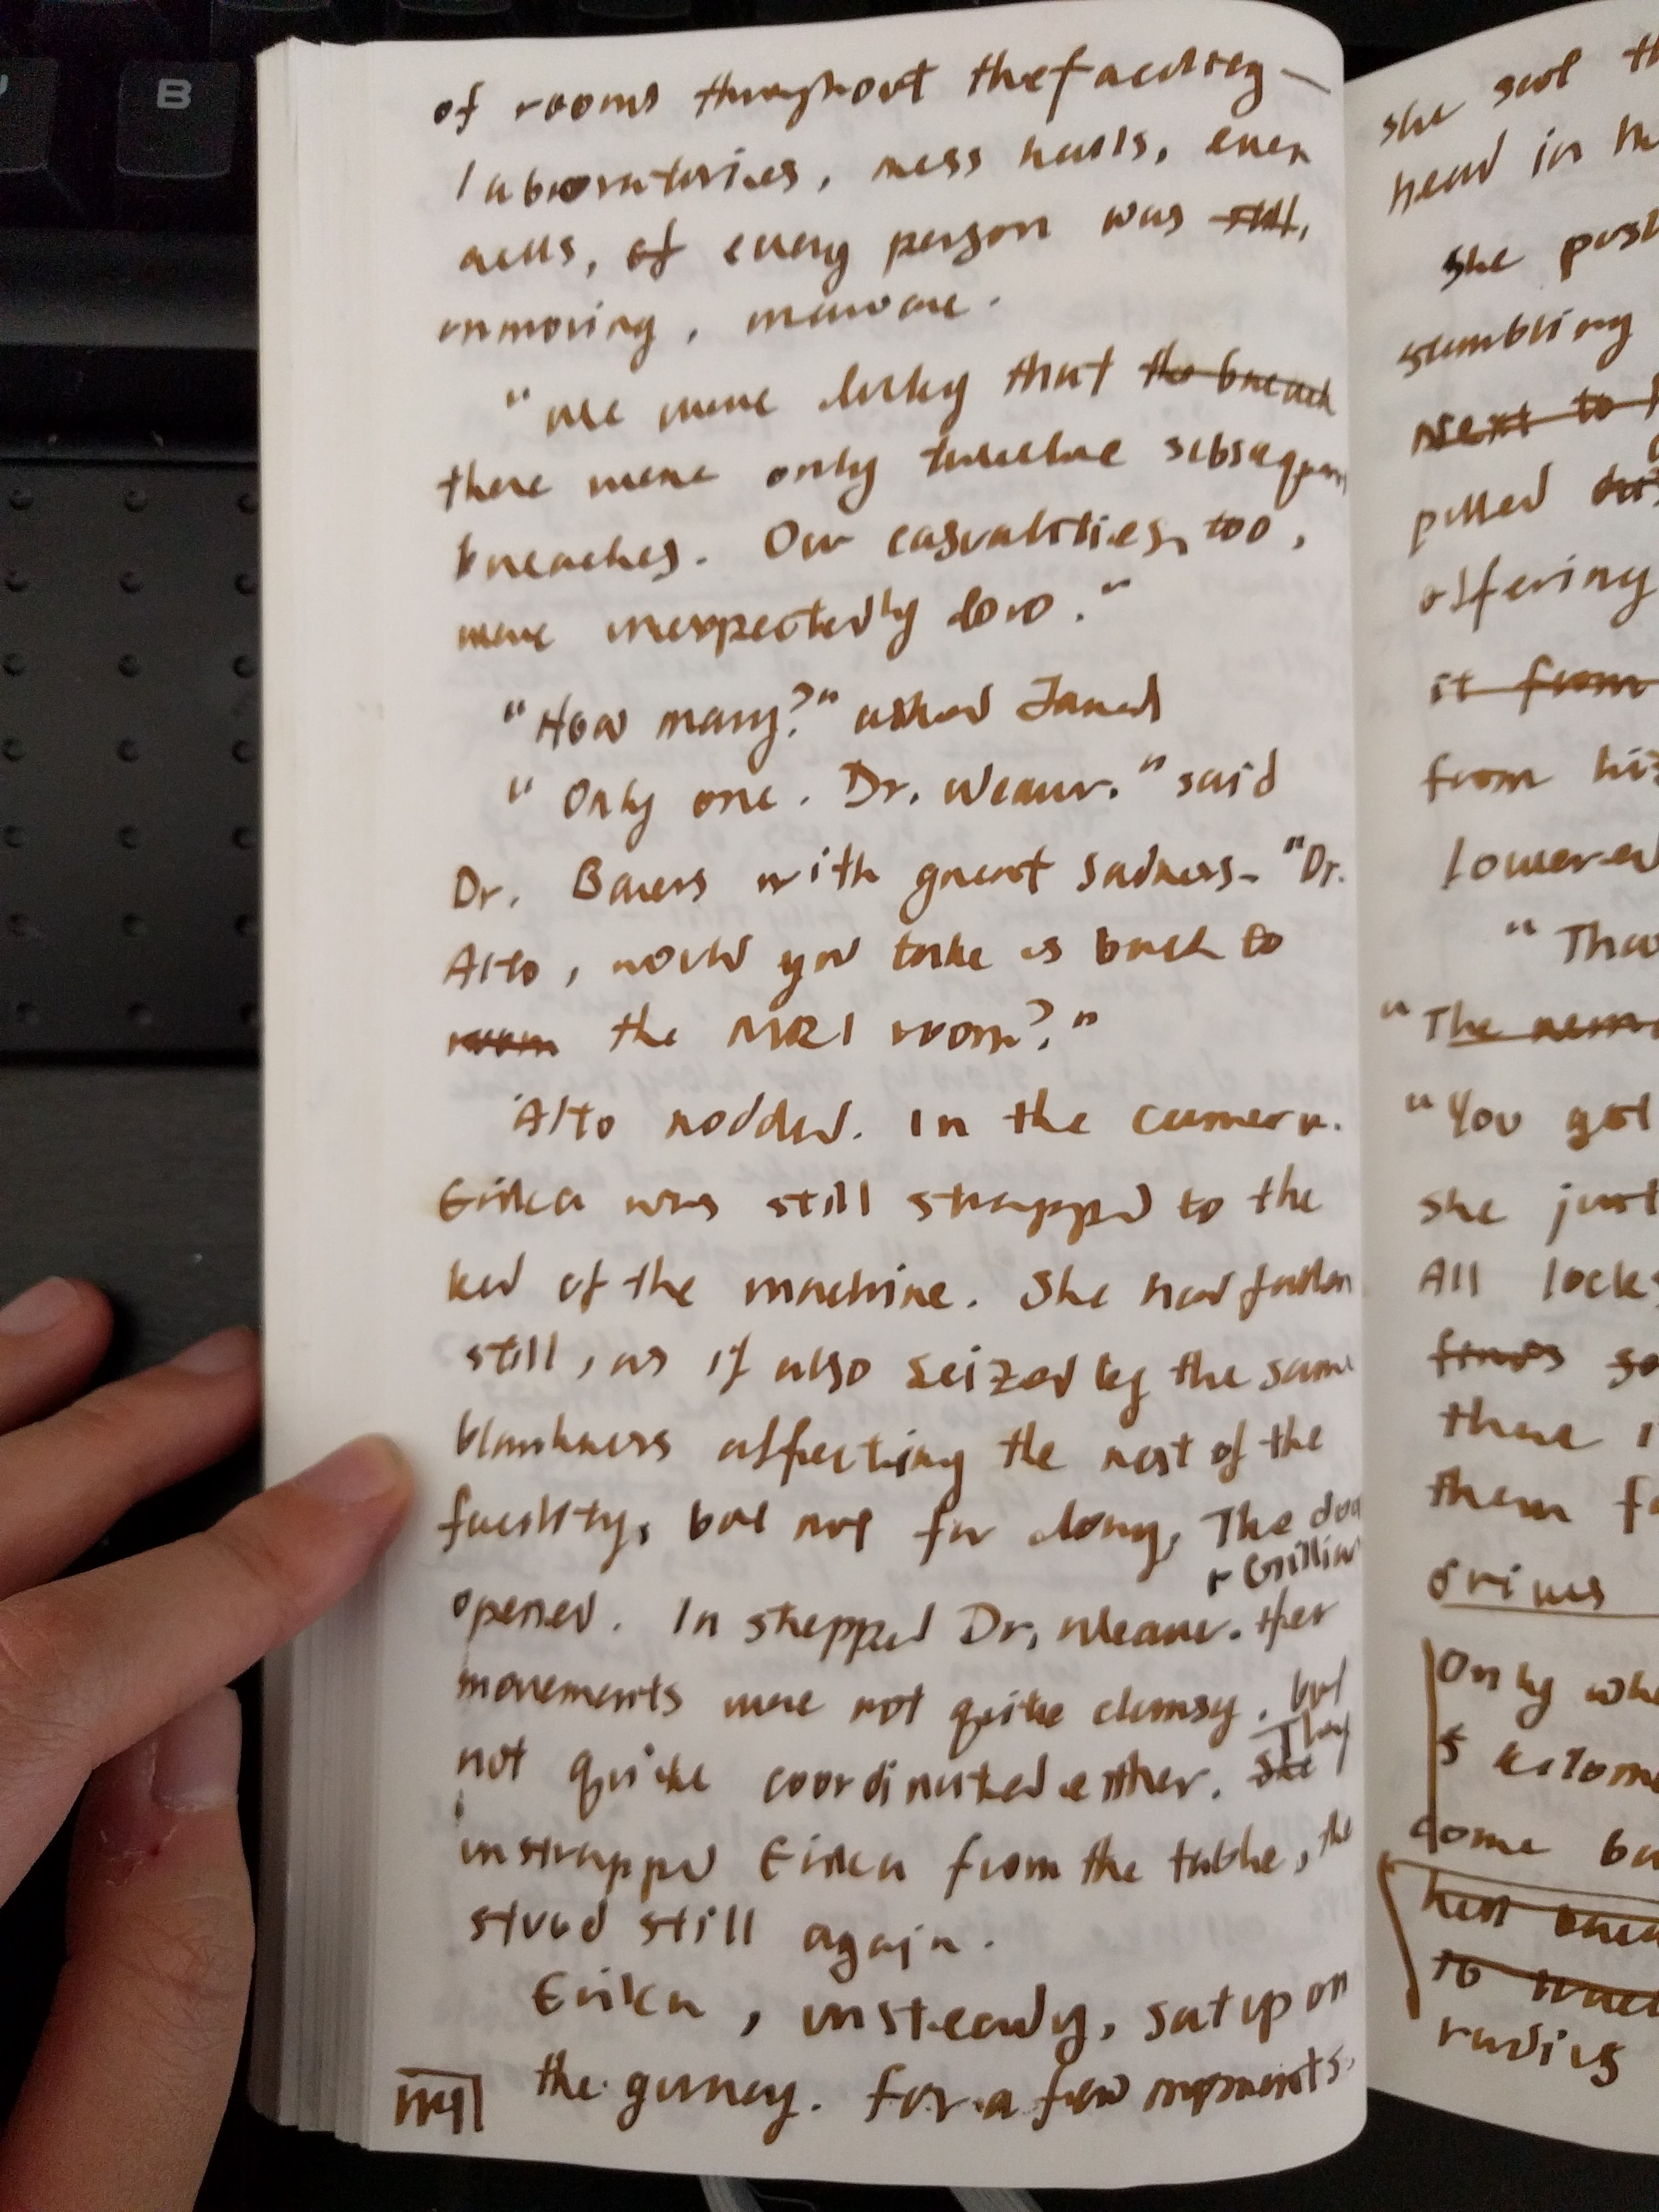 B
of rooms throughout the facility —
laboratories, mess halls, even
cells, of every person was still,
unmoving, unaware.
"We were lucky that the breach
there were only twelve subsequen
breaches. Our casualtities, too,
were unexpectedly low."
"How many?" asked Jared
"Only one. Dr. Weaver." said
Dr. Bauers with great sadness. "Dr.
Alto, would you take us back to
room the MRI room?"
Alto nodded. In the camera.
Erika was still strapped to the
bed of the machine. She had fallen
still, as if also seized by the same
blankness affecting the rest of the
facility, but not for long. The doo
r
opened. In stepped Dr. Weaver. Her
movements were not quite clumsy, but
not quite coordinated either. She They
unstrapped Erika from the table, the
stood still again.
Erika, unsteady, sat up on
the gurney. For a few moments,
she
head in
She
next to
pulled
offering
it from
from his
lowered
"
"The
"You got
she just
All locks
there
them
Only
some
to
radius